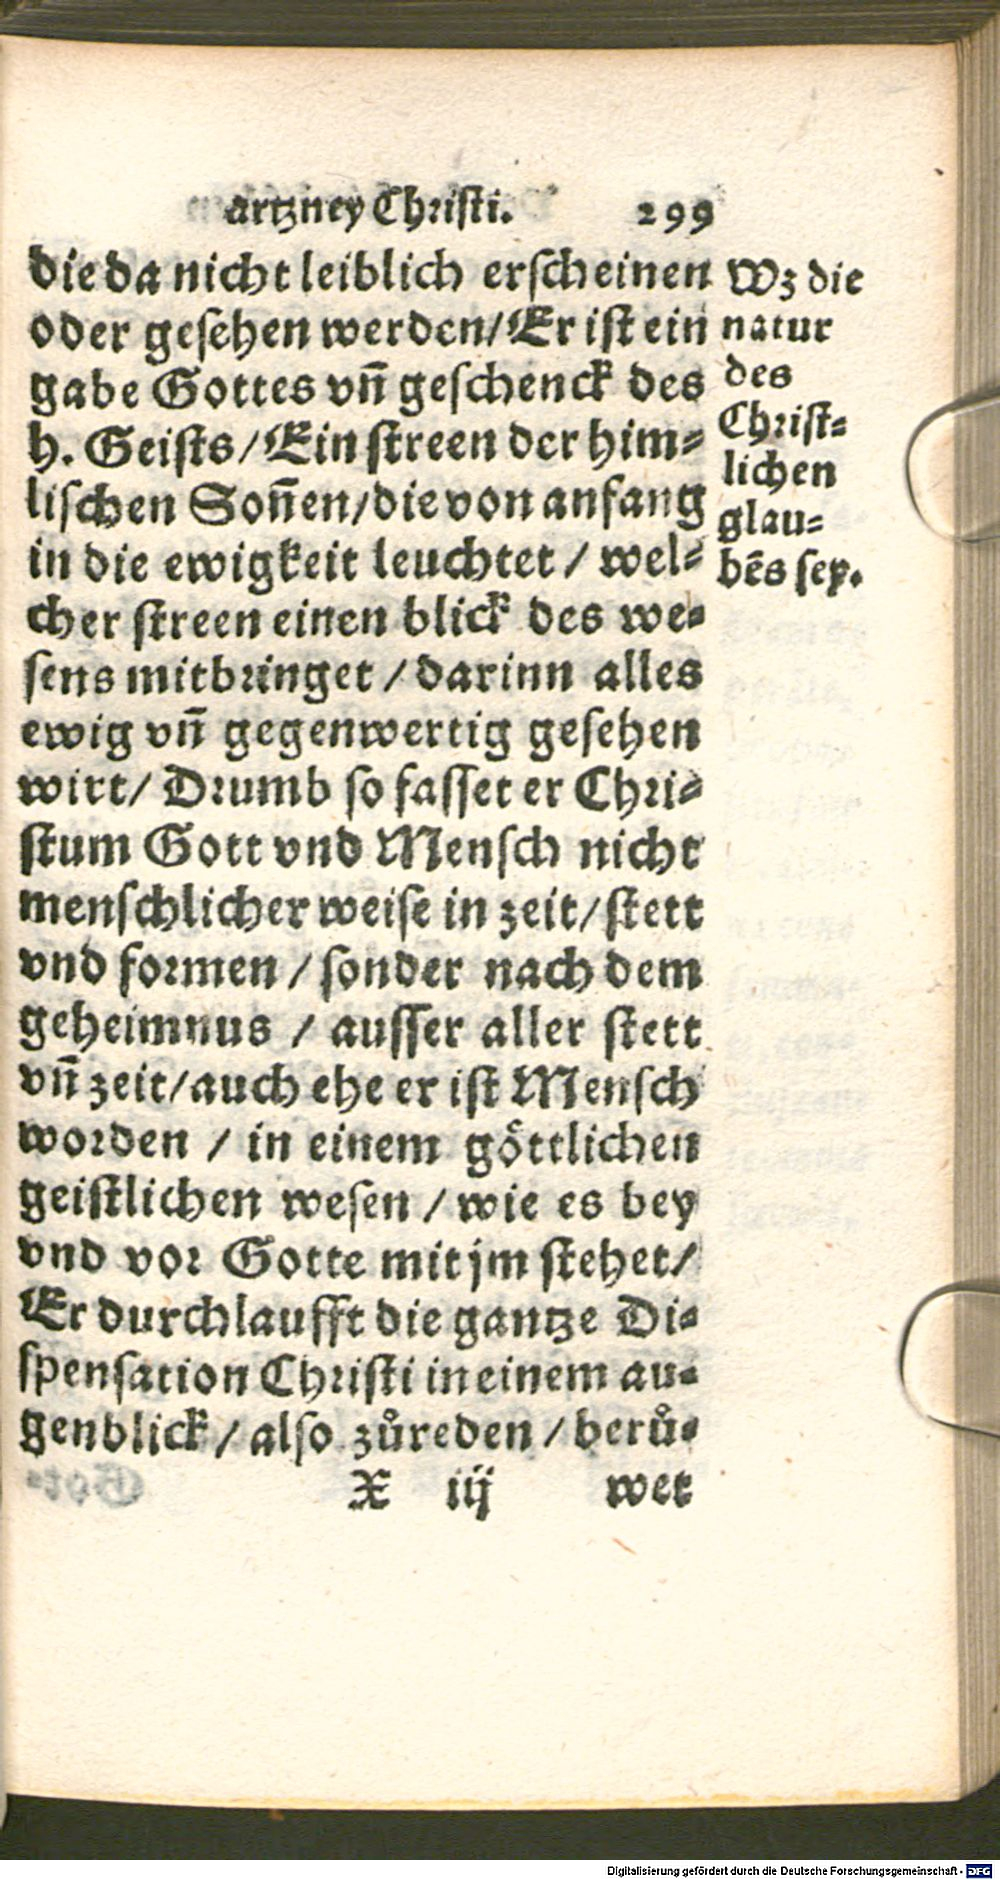 artzney Christi. 299
die da nicht leiblich erscheinen
oder gesehen werden/Er ist ein
gabe Gottes vn̄ geschenck des
h. Geists/Ein streen der him-
lischen Son̄en/die von anfang
in die ewigkeit leuchtet / wel-
cher streen einen blick des we-
sens mitbringet / darinn alles
ewig vn̄ gegenwertig gesehen
wirt/ Drumb so fasset er Chri-
stum Gott vnd Mensch nicht
menschlicher weise in zeit/stett
vnd formen / sonder nach dem
geheimnus / ausser aller stett
vn̄ zeit/auch ehe er ist Mensch
worden / in einem göttlichen
geistlichen wesen / wie es bey
vnd vor Gotte mit jm stehet/
Er durchlaufft die gantze Di-
spensation Christi in einem au-
genblick / also zůreden / berů-
X iij wet
Wz die
natur
des
Christ-
lichen
glau-
bēs sey.
Digitalisierung gefördert durch die Deutsche Forschungsgemeinschaft - DFG